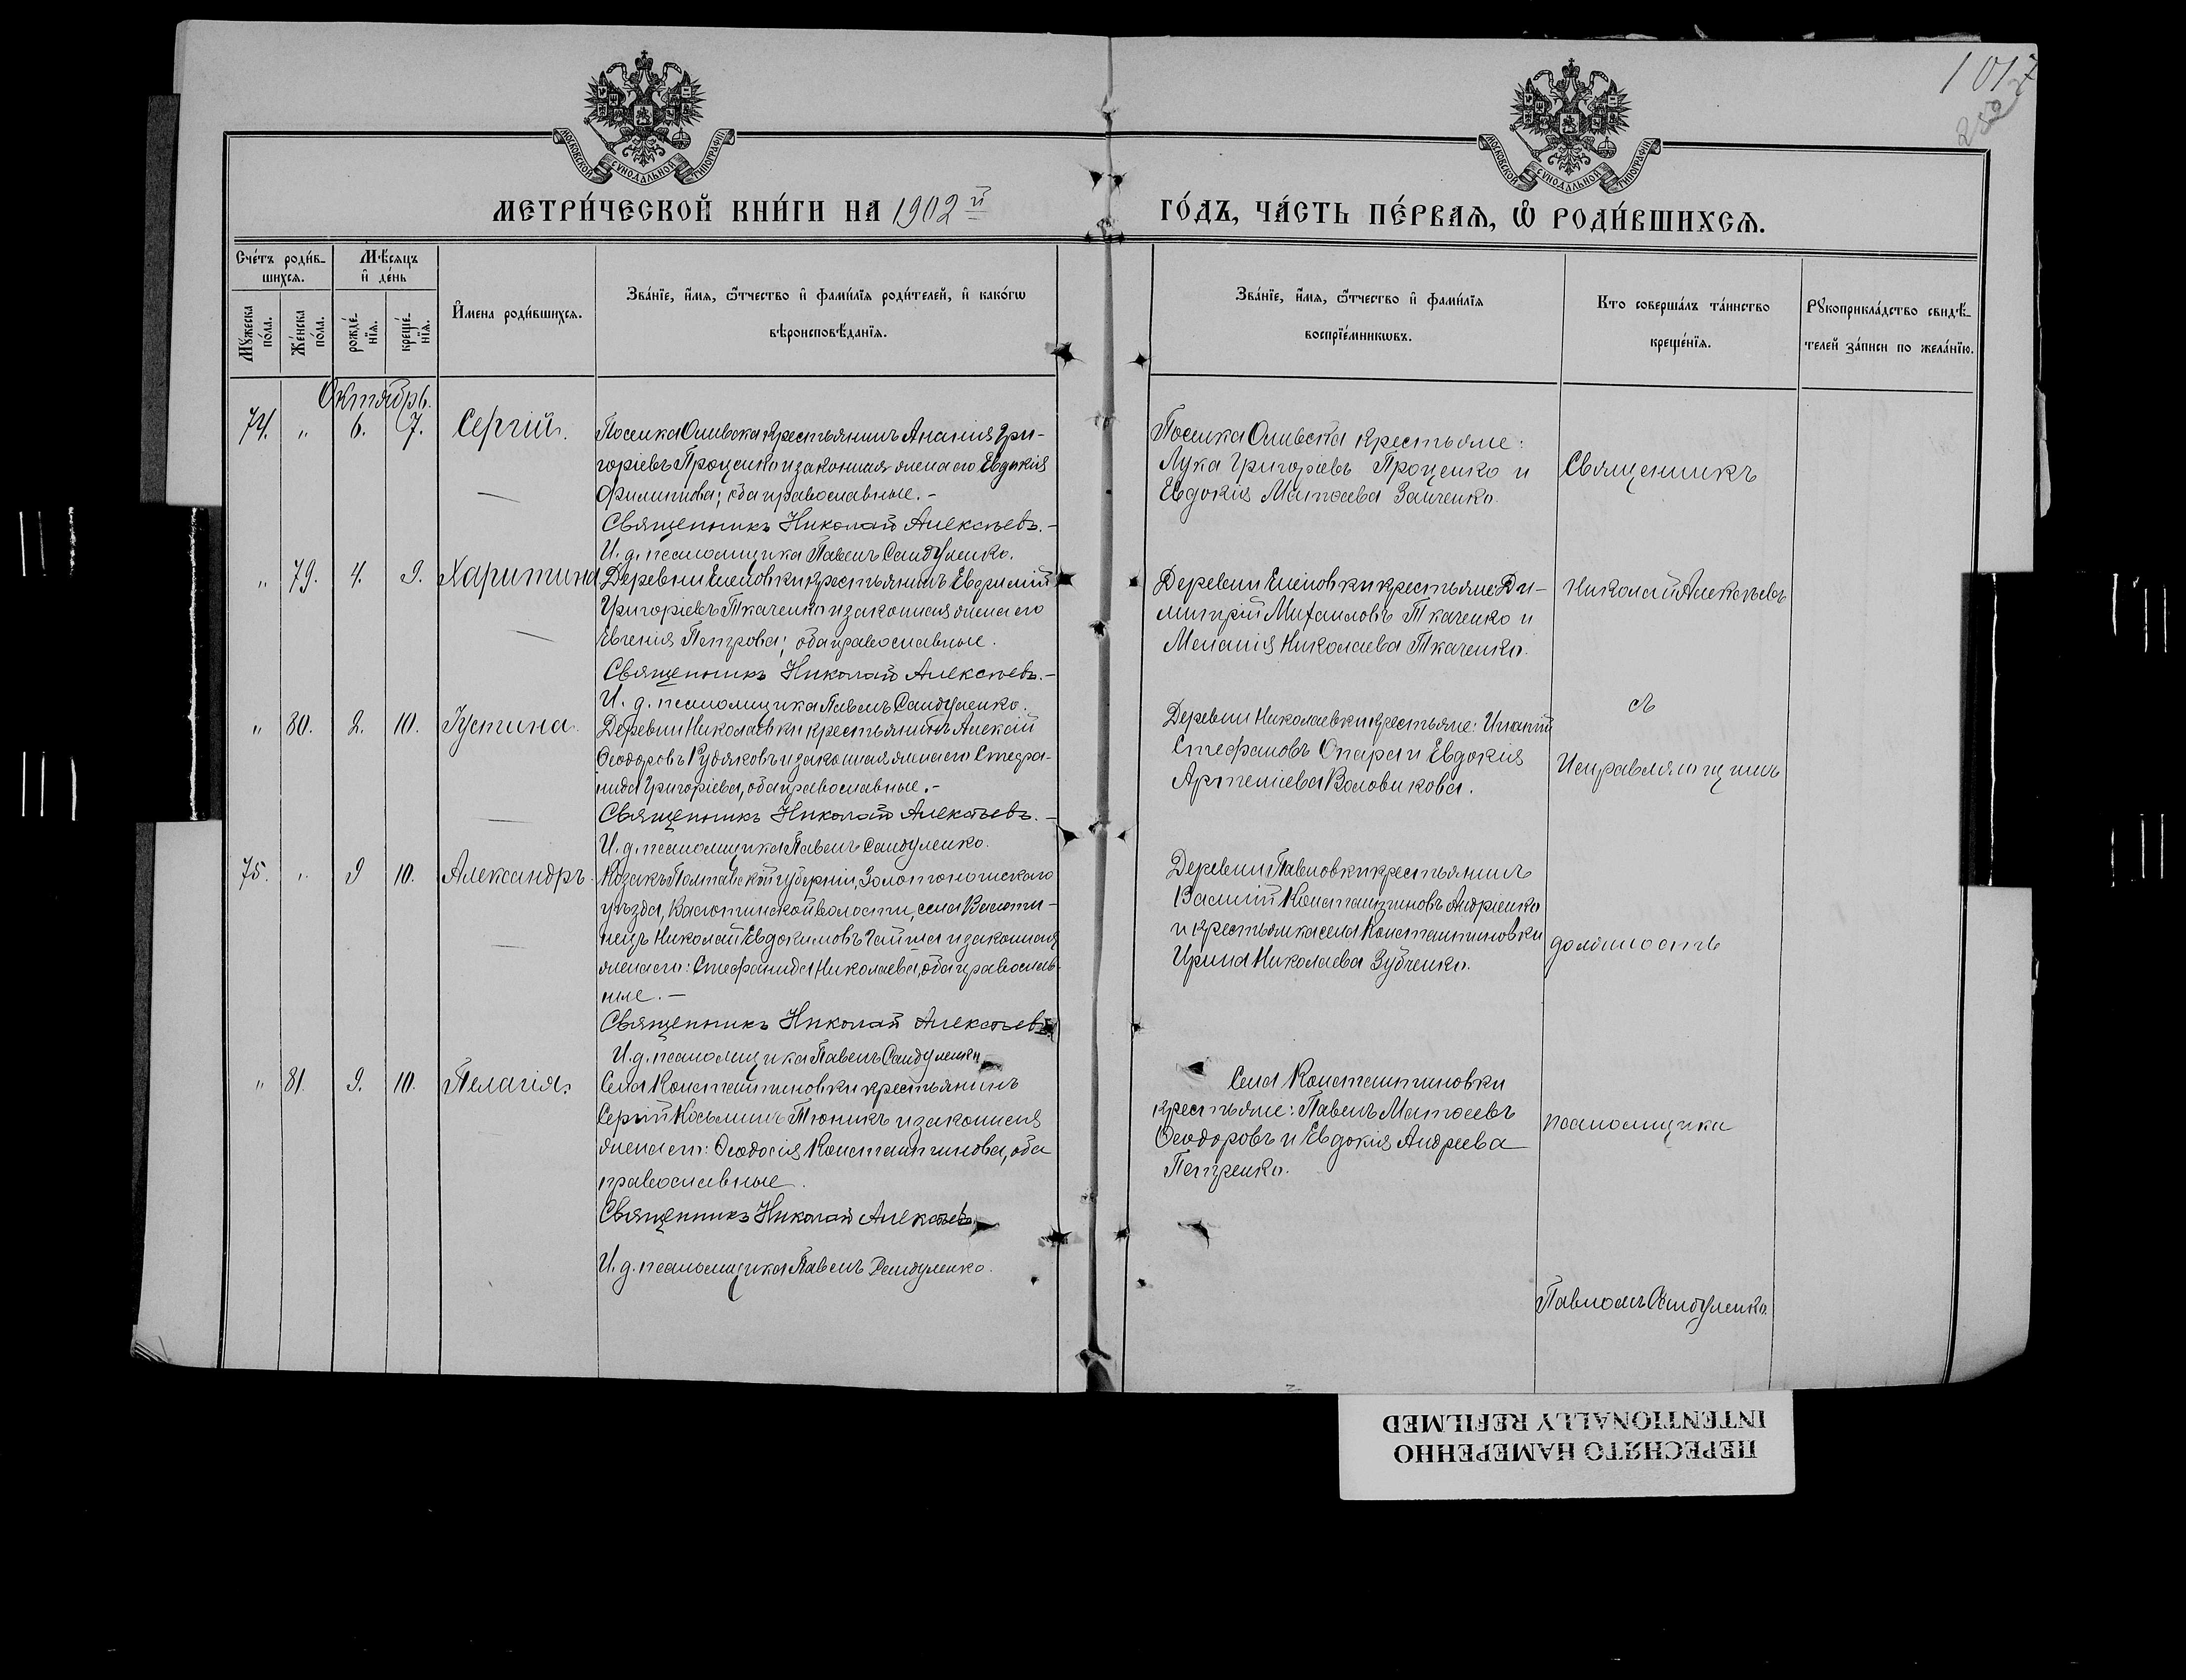 1017
252
МОСКОВСКОЙ СУНОДАЛЬНОЙ ТИПОГРАФІИ
МОСКОВСКОЙ СУНОДАЛЬНОЙ ТИПОГРАФІИ
МЕТРИ́ЧЕСКОЙ КНИ́ГИ НА 1902 й
ГО́ДЪ, ЧА́СТЬ ПЕ́РВАѦ, Ѽ РОДИ́ВШИХСѦ.
Сче́тъ роди́в-
шихсѧ.
Мꙋжеска по́ла.
Же́нска по́ла.
Мѣ́сѧцъ и҆ де́нь
рожде́-нїѧ.
креще́-нїѧ.
И҆мена роди́вшихсѧ.
Зва́нїе, и҆́мѧ, ѻ҆́тчество и҆ фами́лїѧ роди́телей, и҆ како́гѡ
вѣроисповѣ́данїѧ.
Зва́нїе, и҆́мѧ, ѻ҆́тчество и҆ фами́лїѧ
воспрїе́мникѡвъ.
Кто соверша́лъ та́инство
креще́нїѧ.
Рꙋкоприкла́дство свидѣ́-
телей за́писи по жела́нїю.
Октябрь.
74. " 6. 7. Сергій.
Поселка Оливска крестьянинъ Ананія Гри-
горіевъ Проценко и законная жена его Евдокія
Филиппова; оба православные.-
Священникъ Николай Алексѣевъ.-
И. д. псаломщика Павелъ Сандуленко.
Поселка Оливска крестьяне:
Лука Григоріевъ Проценко и
Евдокія Матѳеева Заиченко.
Священникъ
" 79. 4. 9. Харитина
Деревни Еленовки крестьянинъ Евфимій
Григоріевъ Ткаченко и законная жена его
Евгенія Петрова; оба православные.
Священникъ Николай Алексѣевъ.-
И. д. псаломщика Павелъ Сандуленко.
Деревни Еленовки крестьяне: Ди-
митрій Михаиловъ Ткаченко и
Меланія Николаева Ткаченко.
Николай Алексѣевъ
" 80. 2. 10. Іустина.
Деревни Николаевки крестьянинъ Алексій
Ѳеодоровъ Рудяковъ и законная жена его Стефа-
нида Григоріева, оба православные.-
Священникъ Николай Алексѣевъ.-
И. д. псаломщика Павелъ Сандуленко.
Деревни Николаевки крестьяне: Игнатій
Стефановъ Опара и Евдокія
Артеміева Воловикова.
съ
Исправляющимъ
75. " 9 10. Александръ.
Козакъ Полтавской губерніи, Золотоношскаго
уѣзда, Васютинской волости, села Васюти-
нецъ Николай Евдокимовъ Гайма и законная
жена его: Стефанида Николаева, оба православ-
ные.-
Священникъ Николай Алексѣевъ
И. д. псаломщика Павелъ Сандуленко
Деревни Павловки крестьянинъ
Василій Константиновъ Андріенко
и крестьянка села Константиновки
Ирина Николаева Зубченко.
должность
" 81. 9. 10. Пелагія.
Села Константиновки крестьянинъ
Сергій Косьминъ Тюникъ и законная
жена его: Ѳеодосія Константинова, оба
православные.
Священникъ Николай Алексѣевъ
И. д. псаломщика Павелъ Сандуленко.
Села Константиновки
крестьяне: Павелъ Матѳеевъ
Ѳеодоровъ и Евдокія Андреева
Петренко.
псаломщика
Павломъ Сандуленко.
ПЕРЕСНЯТО НАМЕРЕННО
INTENTIONALLY REFILMED